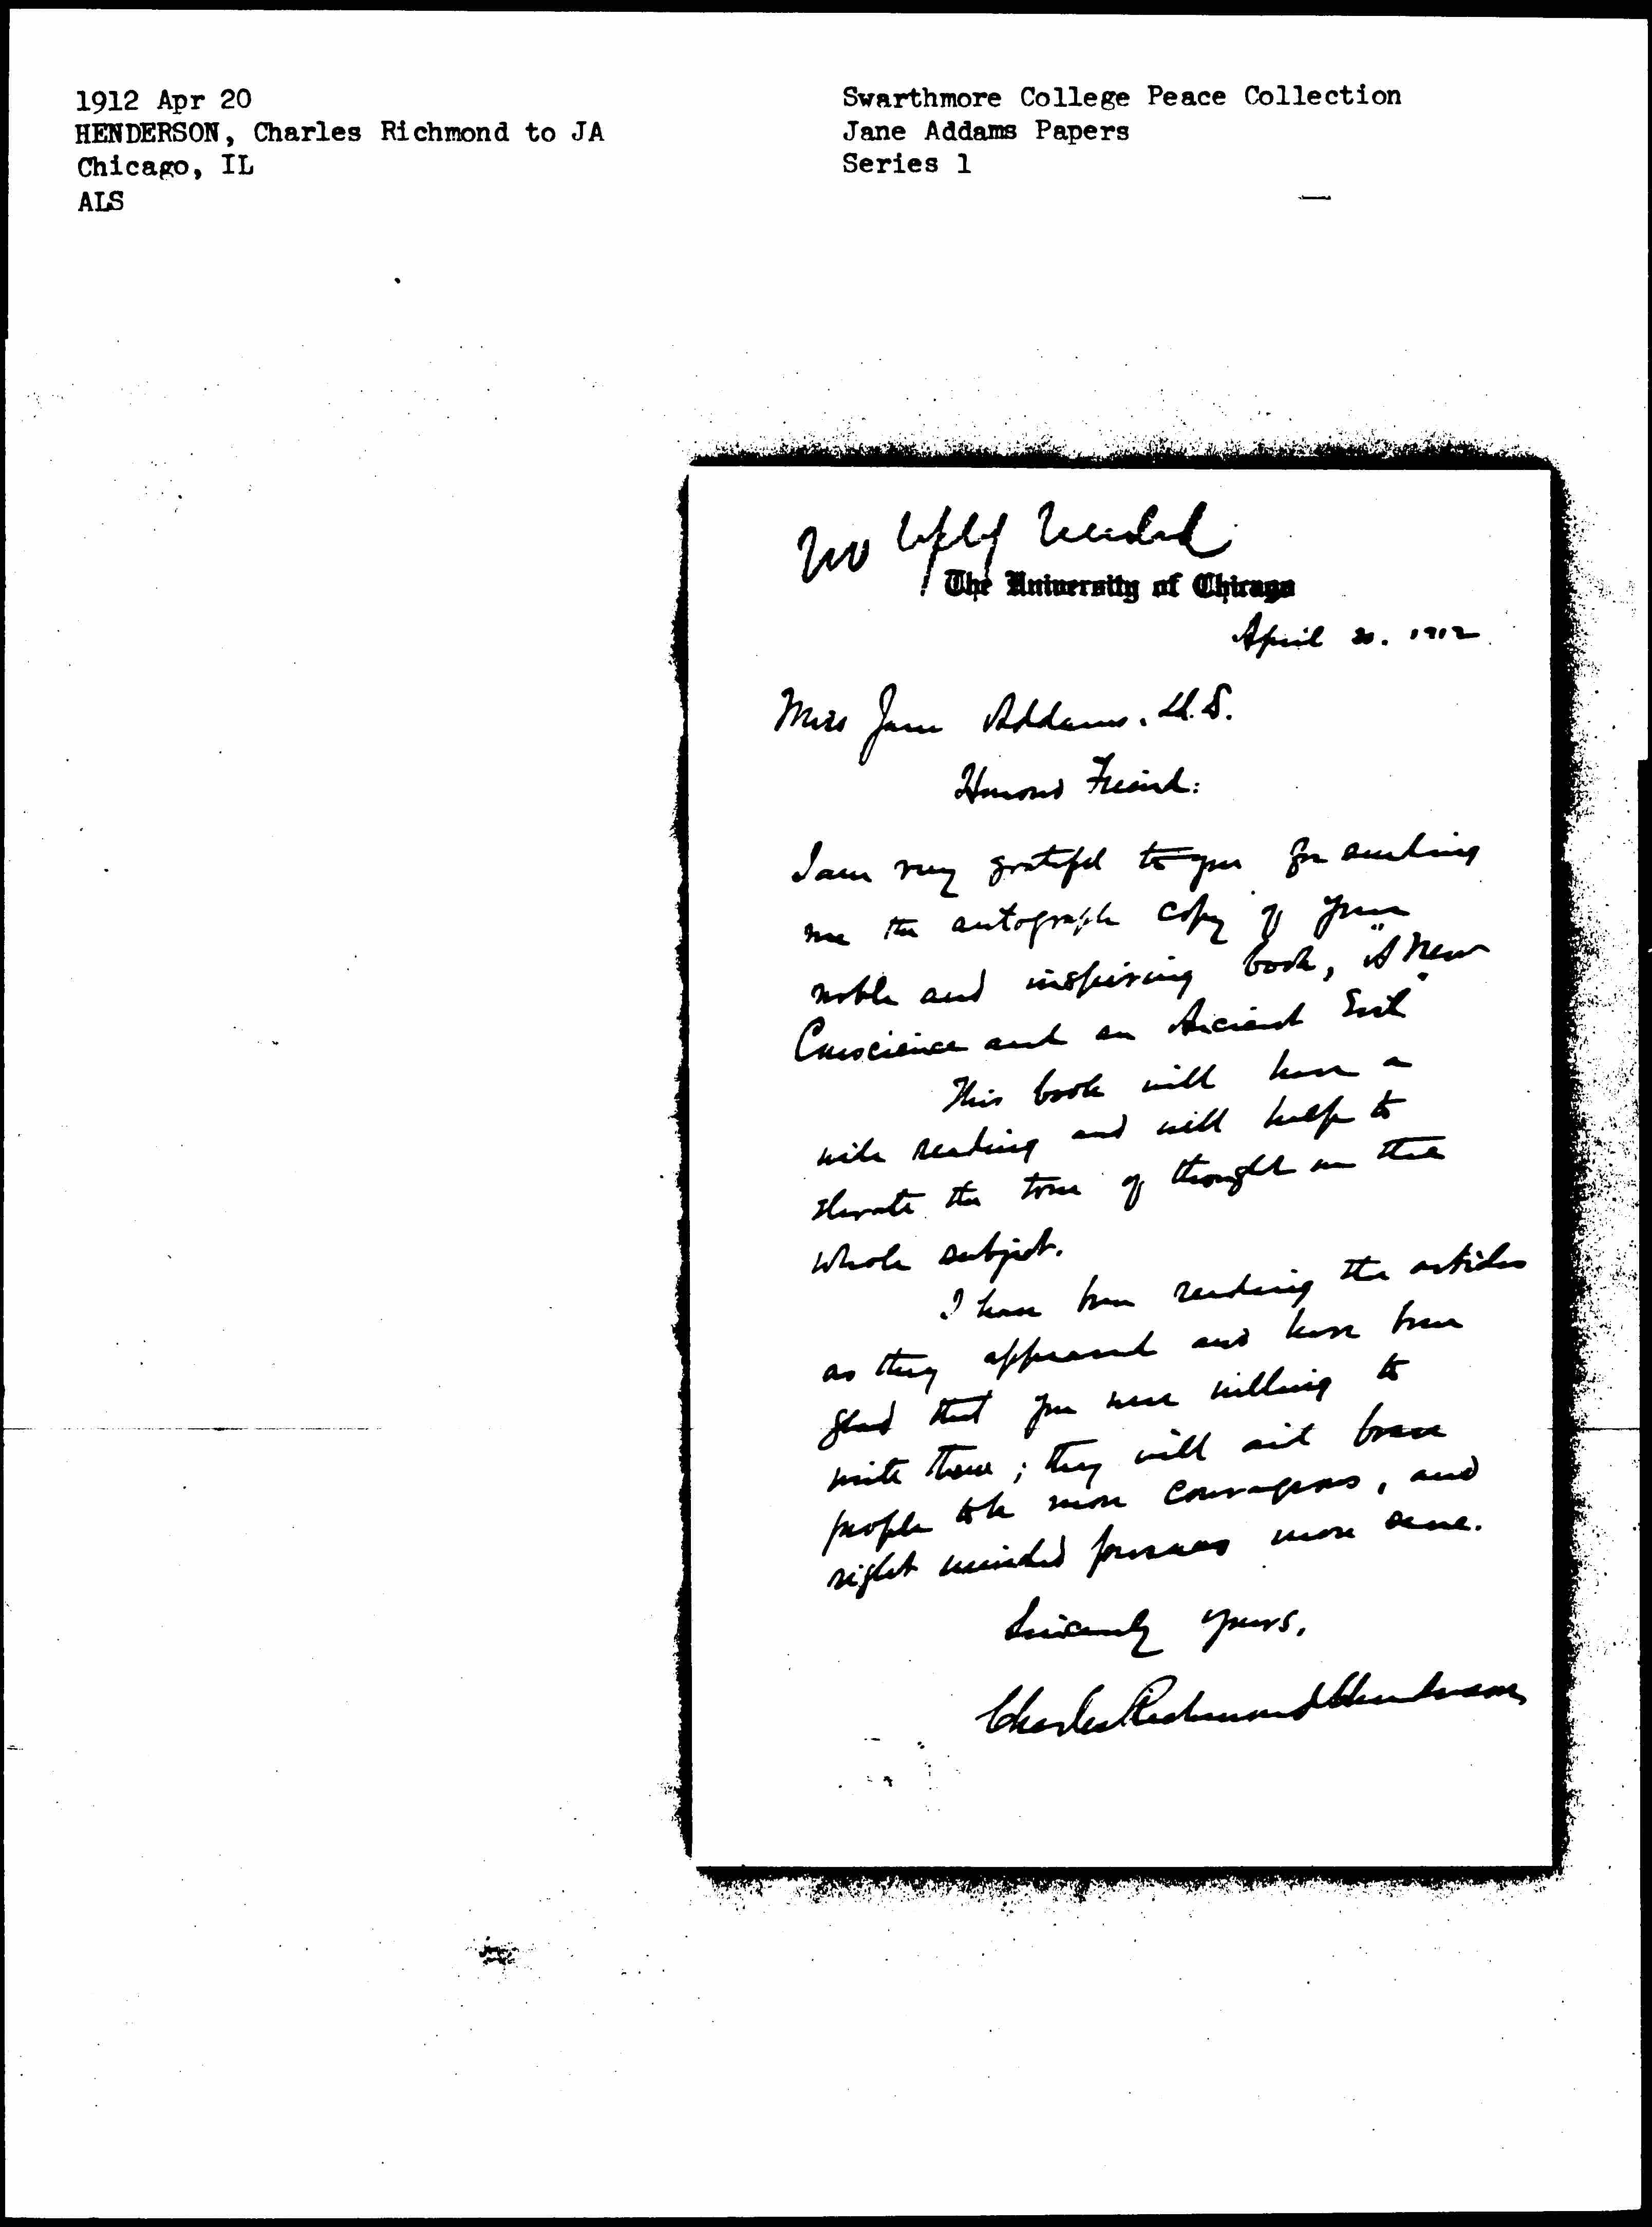 1912 Apr 20
HENDERSON, Charles Richmond to JA
Chicago, IL
ALS
Swarthmore College Peace Collection
Jane Addams Papers
Series 1
No reply needed
The University of Chicago
April 20. 1912
Miss Jane Addams. LL.D.
Honored Friend:
I am very grateful to you for sending
me the autograph copy of your
noble and inspiring book, "A New
Conscience and an Ancient Evil"
This book will have a
wide reading and will help to
elevate the tone of thought on the
whole subject.
I have been reading the articles
as they appeared and have been
glad that you were willing to
write them; they will aid brave
people to be more courageous, and
right minded persons more sane.
Sincerely yours,
Charles Richmond Henderson